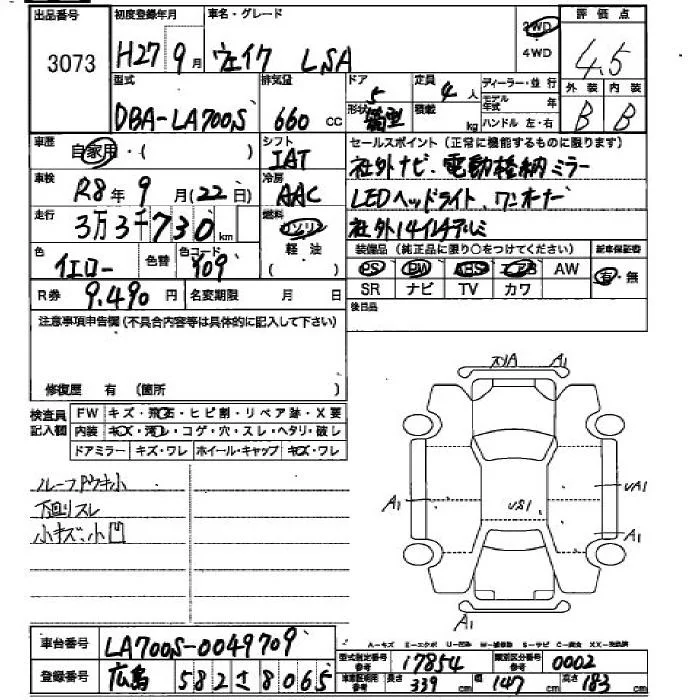 出品番号 3073
初度登録年月 H27年9月
車名・グレード ウェイク L SA
2WD
4WD
評価点 4.5
外装 B 内装 B
型式 DBA-LA700S
排気量 660 cc
ドア 5 形状 箱型
定員 4人 積載 kg
ディーラー・並行
モデル年式 年
ハンドル 左・右
車歴 自家用・( )
シフト IAT
車検 R8年9月(22日)
冷房 AAC
走行 3万3千730km
燃料 ガソリン 軽油 ( )
色 イエロー 色替 色コード Y09
R券 9,490円 名変期限 月 日
セールスポイント(正常に機能するものに限ります)
社外ナビ、電動格納ミラー
LEDヘッドライト、ワンオーナー
社外14インチアルミ
装備品(純正品に限り○をつけてください)
PS PW ABS エアB AW
SR ナビ TV カワ
新車保証書 有・無
後日品
注意事項申告欄(不具合内容等は具体的に記入して下さい)
修復歴 有 (箇所 )
検査員記入欄
FW キズ・飛石・ヒビ割・リペア跡・X要
内装 キズ・汚レ・コゲ・穴・スレ・ヘタリ・破レ
ドアミラー キズ・ワレ ホイール・キャップ キズ・ワレ
ルーフアウキ小
下廻りスレ
小キズ、小凹
スリA A1
A1 US1 UA1
A1
A1
A-キズ E-エクボ U-凹み W-補修跡 S-サビ C-腐食 XX-交換済
車台番号 LA700S-0049709
登録番号 広島 582 さ 8065
型式指定番号参考 17854 類別区分番号参考 0002
車庫証明用参考 長さ 339 cm 幅 147 cm 高さ 183 cm